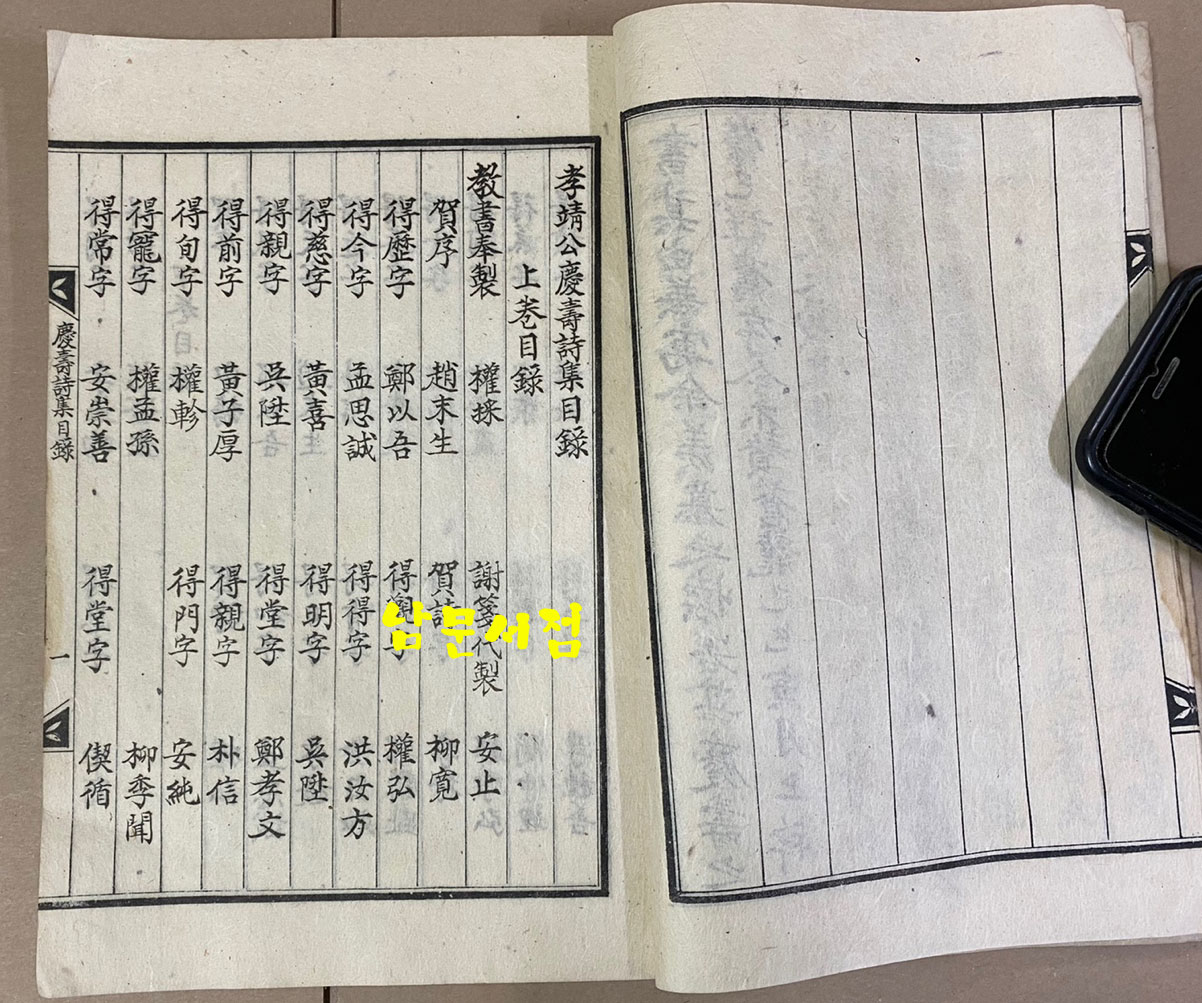 孝靖公慶壽詩集目錄
上卷目錄
教書奉製 權採 謝箋代製 安止
賀序 趙末生 賀詩 柳寬
得歷字 鄭以吾 得 字 權弘
得今字 孟思誠 得得字 洪汝方
得慈字 黃喜 得明字 吳陞
得親字 吳陞 得堂字 鄭孝文
得前字 黃子厚 得親字 朴信
得旬字 權軫 得門字 安純
得寵字 權孟孫 柳季聞
得常字 安崇善 得堂字 偰循
慶壽詩集目錄 一
남문서점